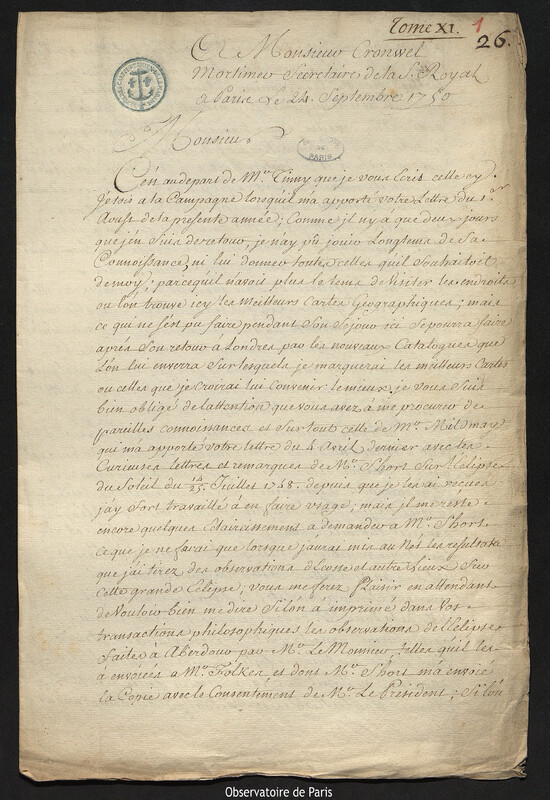 Tome XI. 1
26.
A Monsieur Cromwel
Mortimer Secretaire de la S.e Royal
a Paris le 24 Septembre 1750
Monsieur
PARIS
C'en au depart de Mr Timy que je vous Ecris celle cy
J'etois a la Campagne lorsquil m'a apporté votre Lettre du 1er
Aoust de la presente année; Comme il n'y a que deux jours
que j'en suis de retour, je n'ay pû jouir Longtems de Sa
Connoissance, ni lui donner toutes celles quil Souhaitoit
de moy; parcequil n'avoit plus le tems de visiter les endroits
ou l'on trouve icy les Meilleurs Cartes Geographiques; mais
ce qui ne s'est pu faire pendant Son Sejour ici se pourra faire
aprés Son retour a Londres par les nouveaux Catalogues que
l'on lui enverra Sur lesquels je marquerai les meilleurs Cartes
ou celles que je croirai lui Convenir le mieux; je vous Suis
bien obligé de l'attention que vous avez à me procurer de
pareilles connoissances et Sur tout celle de Mr Mildmay
qui m'a apporté votre lettre du 4 Avril dernier avec les
Curieuses Lettres et remarques de Mr Short Sur l'Eclipse
du Soleil du 14/25 Juillet 1748. depuis que je les ai reçues
j'ay fort travaillé à en faire usage; mais il me reste
encore quelques Eclaircissemens a demander a Mr Short
ce que je ne farai que lorsque j'aurai mis au Net les resultats
que j'ai tirez des observations d'Ecosse et autre Lieux Sur
cette grande Eclipse; vous me ferez Plaisir en attendant
de Vouloir bien me dire Si l'on à imprimé dans Vos
transactions philosophiques les observations de l'Eclipse
faites à Aberdour par Mr Le Monnier telles quil les
à envoiées a Mr Folkes et dont Mr Short m'a envoié
la Copie avec le Consentiment de Mr Le President; Si l'on
Observatoire de Paris